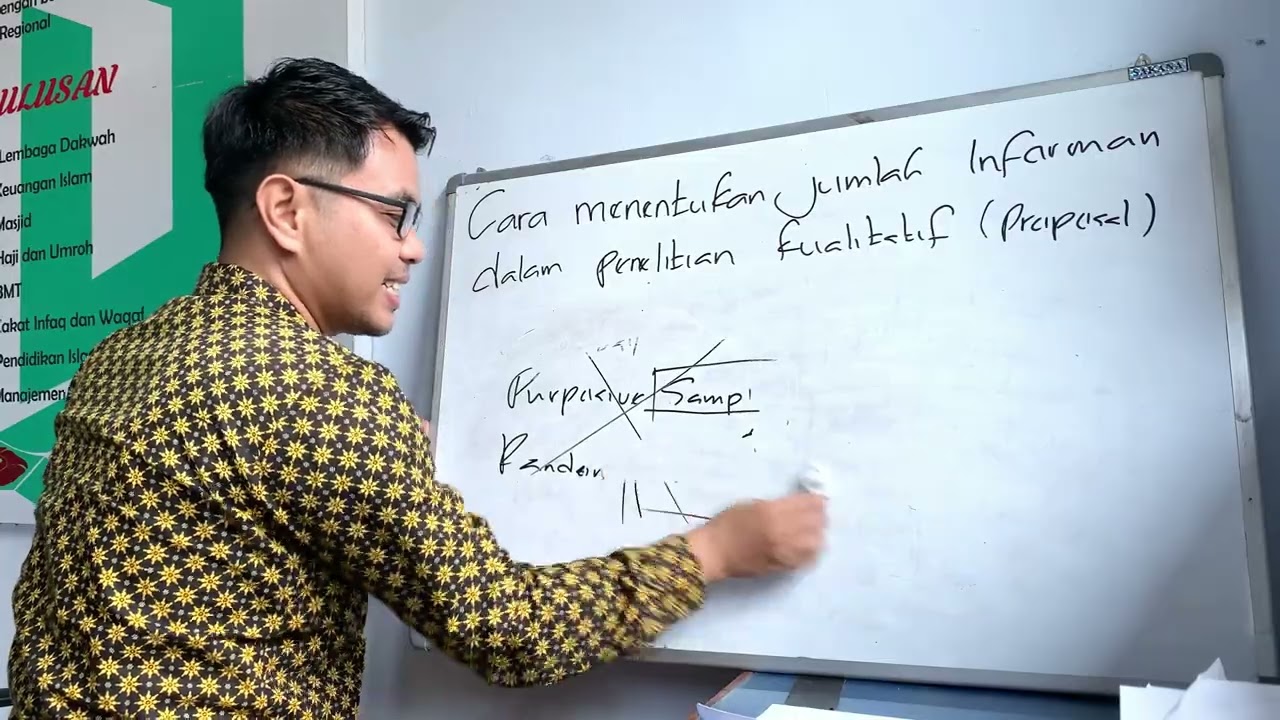 Regional
ULUSAN
Lembaga Dakwah
Keuangan Islam
Masjid
Haji dan Umroh
BMT
Zakat Infaq dan Waqaf
Pendidikan Isl
Manajemen
SAKANA
Cara menentukan jumlah Informan
dalam penelitian kualitatif (Proposal)
Purposive Sampl
Random